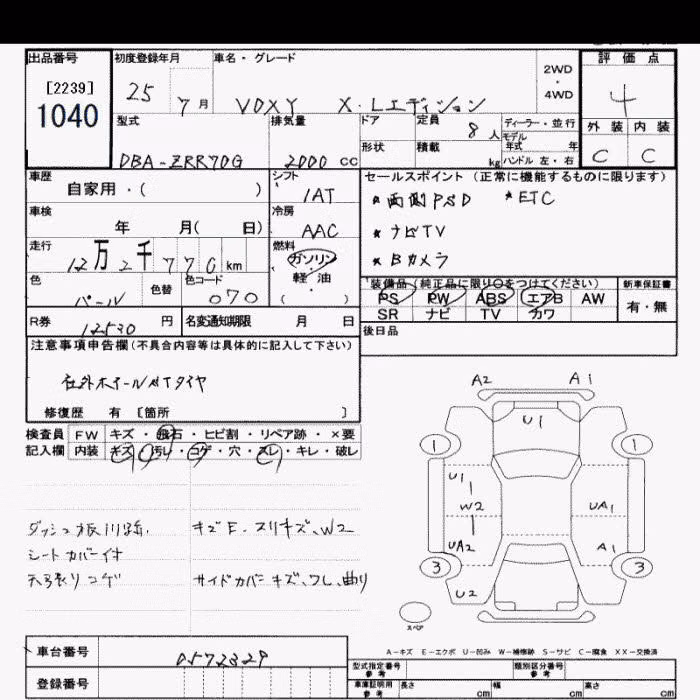 出品番号 初度登録年月 車名・グレード 2WD・4WD 評価点
[2239]
1040
25 7月 VOXY X・Lエディション
4
型式 排気量 ドア 定員 8人 ディーラー・並行
モデル年式 年
形状 積載 kg ハンドル 左・右
外装 内装
DBA-ZRR70G 2000 CC
C C
車歴 自家用・( ) シフト 1AT
セールスポイント(正常に機能するものに限ります)
*両側PSD *ETC
*ナビTV
*Bカメラ
車検 年 月( 日) 冷房 AAC
走行 12万2千770km 燃料 ガソリン・軽油・( )
色 パール 色替 色コード 070
装備品(純正品に限り○をつけてください) 新車保証書
PS PW ABS エアB AW
SR ナビ TV カワ
有・無
R券 12530円 名変通知期限 月 日
後日品
注意事項申告欄(不具合内容等は具体的に記入して下さい)
社外ホイールMTタイヤ
修復歴 有 [箇所 ]
検査員 FW キズ・飛石・ヒビ割・リペア跡・×要
記入欄 内装 キズ・汚レ・コゲ・穴・スレ・キレ・破レ
キズE・スリキズ、W2
シートカバー付
天張りコゲ サイドカバーキズ、ワレ、曲り
A2 A1
U1
1 1
U1
W2 UA1
UA2 A1
3 3
U2
スペア
A-キズ E-エクボ U-凹み W-補修跡 S-サビ C-腐食 XX-交換済
車台番号 0572329
登録番号
型式指定番号 参考 類別区分番号 参考
車庫証明用 参考 長さ cm 幅 cm 高さ cm